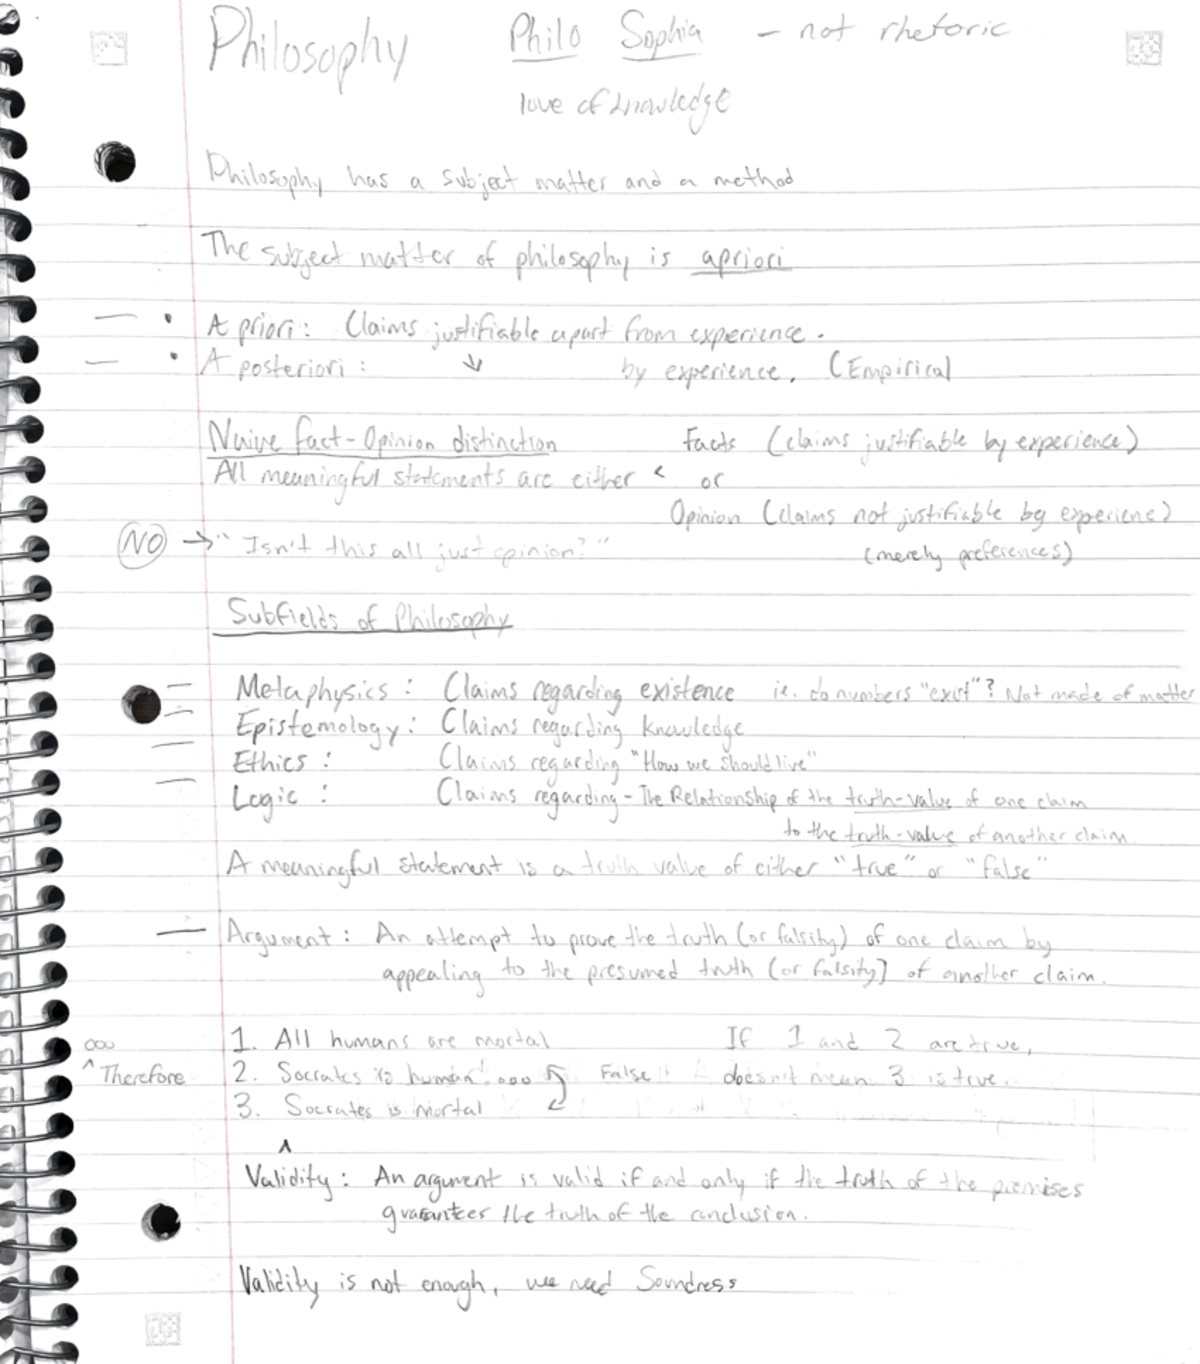 Philosophy Philo Sophia - not rhetoric
love of knowledge
Philosophy has a subject matter and a method
The subject matter of philosophy is apriori
— • A priori : Claims justifiable apart from experience.
— • A posteriori : ↓ by experience. (Empirical
Naive fact-Opinion distinction Facts (claims justifiable by experience)
All meaningful statements are either < or
Opinion (claims not justifiable by experiene)
NO → "Isn't this all just opinion?" (merely preferences)
Subfields of Philosophy
Metaphysics : Claims regarding existence ie. do numbers "exist"? Not made of matter
Epistemology : Claims regarding knowledge
Ethics : Claims regarding "How we should live"
Logic : Claims regarding - The Relationship of the truth-value of one claim
to the truth-value of another claim.
A meaningful statement is a truth value of either "true" or "false"
— Argument : An attempt to prove the truth (or falsity) of one claim by
appealing to the presumed truth (or falsity) of another claim.
ooo 1. All humans are mortal If 1 and 2 are true,
^ Therefore 2. Socrates is human ooo False doesn't mean 3 is true.
3. Socrates is mortal
^
Validity : An argument is valid if and only if the truth of the premises
guarantees the truth of the conclusion.
Validity is not enough, we need Soundness